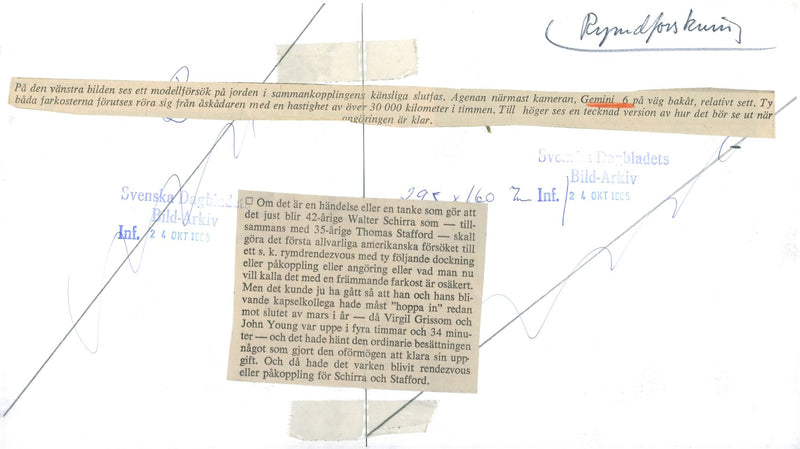 Rymdforskning
På den vänstra bilden ses ett modellförsök på jorden i sammankopplingens känsliga slutfas. Agenan närmast kameran, Gemini 6 på väg bakåt, relativt sett. Ty
båda farkosterna förutses röra sig från åskådaren med en hastighet av över 30 000 kilometer i timmen. Till höger ses en tecknad version av hur det bör se ut när
angöringen är klar.
Svenska Dagbladets
Bild-Arkiv
Inf. 24 OKT 1965
Svenska Dagbladets
Bild-Arkiv
Inf. 24 OKT 1965
295 x 160
□ Om det är en händelse eller en tanke som gör att
det just blir 42-årige Walter Schirra som — till-
sammans med 35-årige Thomas Stafford — skall
göra det första allvarliga amerikanska försöket till
ett s. k. rymdrendezvous med ty följande dockning
eller påkoppling eller angöring eller vad man nu
vill kalla det med en främmande farkost är osäkert.
Men det kunde ju ha gått så att han och hans bli-
vande kapselkollega hade måst "hoppa in" redan
mot slutet av mars i år — då Virgil Grissom och
John Young var uppe i fyra timmar och 34 minu-
ter — och det hade hänt den ordinarie besättningen
något som gjort den oförmögen att klara sin upp-
gift. Och då hade det varken blivit rendezvous
eller påkoppling för Schirra och Stafford.